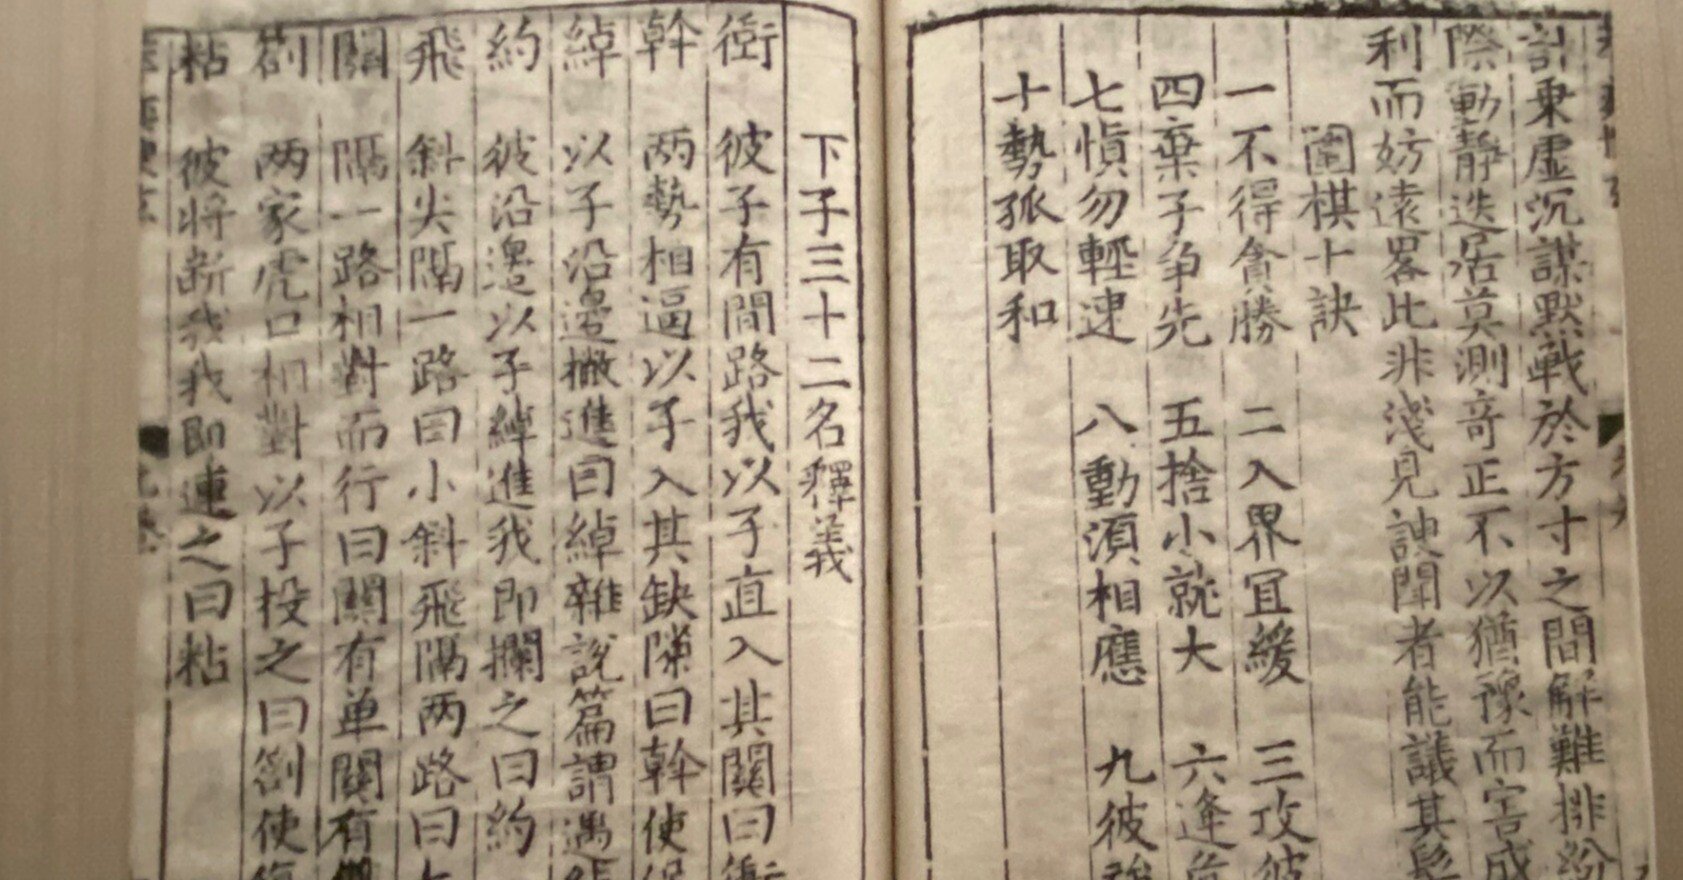 計乗虛沉謀默戰於方寸之間解難排紛
際動靜迭居莫測竒正不以猶豫而害成
利而妨遠畧此非淺見諛聞者能議其
圍棋十訣
一不得貪勝 二入界冝緩 三攻彼
四棄子争先 五捨小就大 六逢危
七慎勿輕速 八動湏相應 九彼強
十勢孤取和
下子三十二名釋義
衝 彼子有間路我以子直入其關曰衝
幹 两勢相逼以子入其缺隙曰幹使
綽 以子沿邊撇進曰綽雜說篇謂遇
約 彼沿邊以子綽進我即攔之曰約
飛 斜尖隔一路曰小斜飛隔两路曰
關 隔一路相對而行曰關有单關有雙
劄 两家虎口相對以子投之曰劄使
粘 彼将断我我即連之曰粘